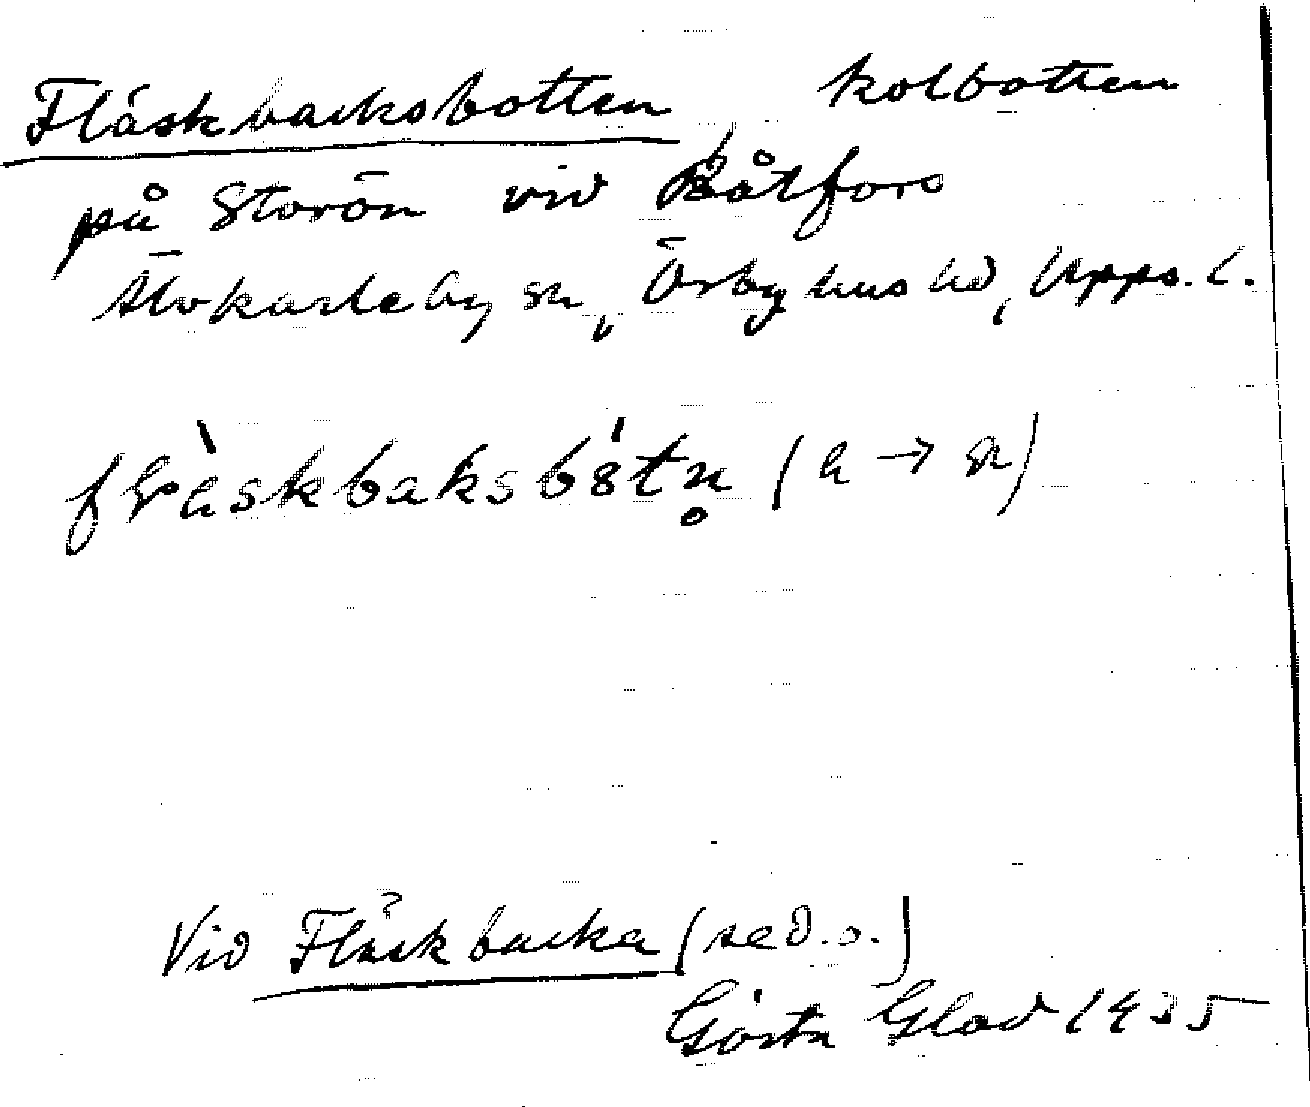 Fläskbacksbotten kolbotten
på Storön vid Båtfors
Älvkarleby sn, Örbyhus hd, Upps. l.
Vid Fläskbacka (se d. o.)
Gösta Glad 1935